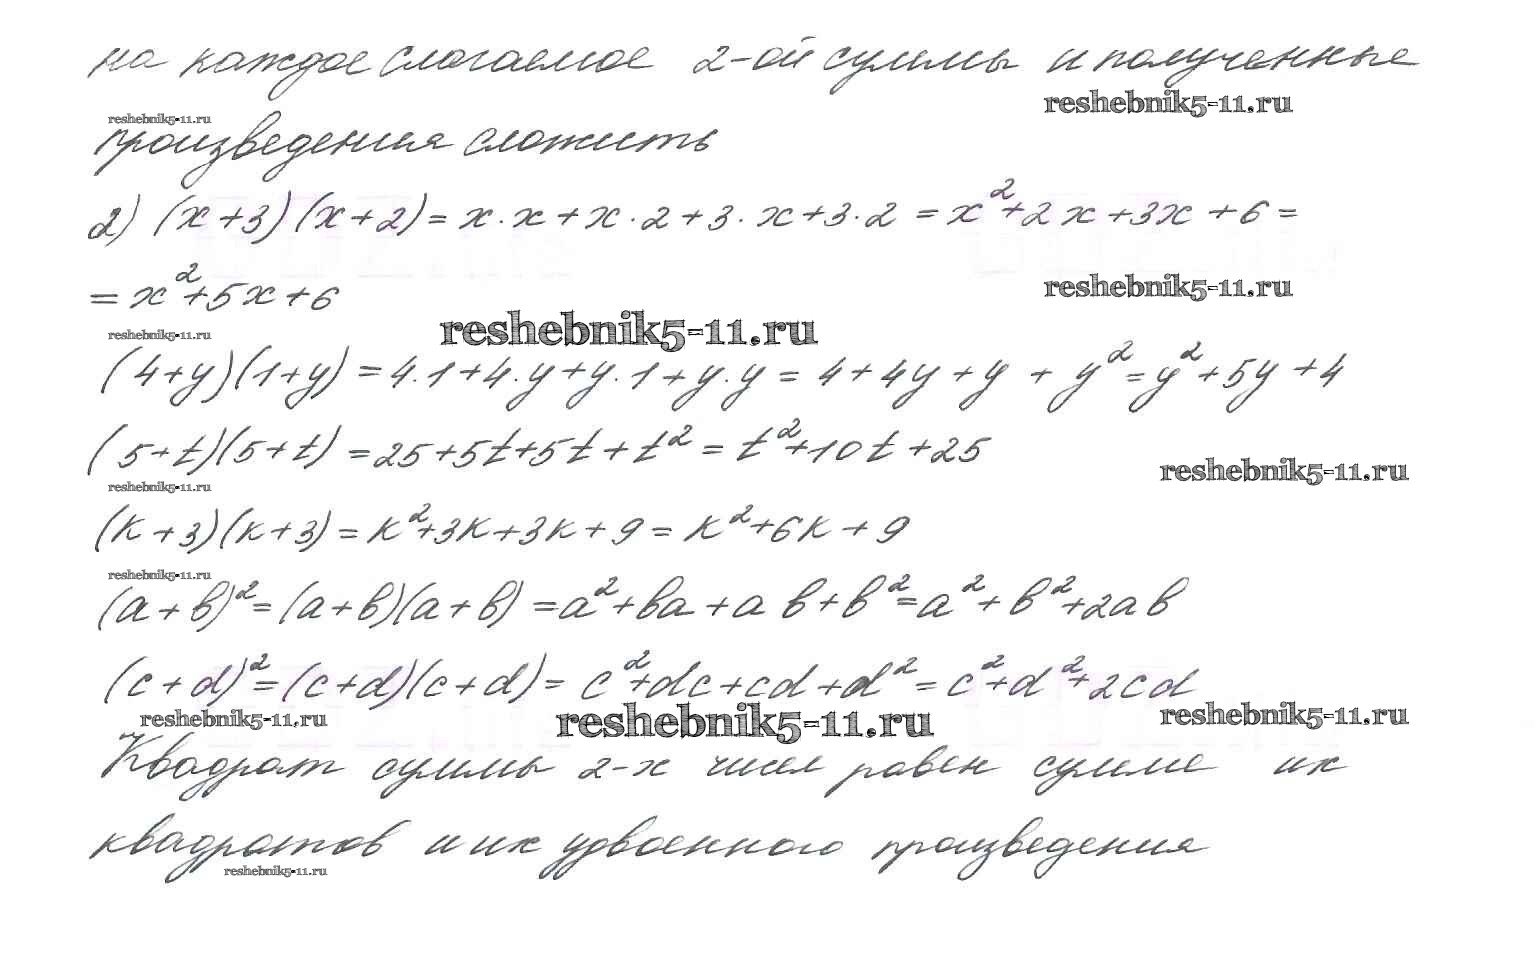 на каждое слагаемое 2-ой суммы и полученные
reshebnik5-11.ru
reshebnik5-11.ru
произведения сложить
2) (x+3)(x+2)=x·x+x·2+3·x+3·2=x²+2x+3x+6=
=x²+5x+6
reshebnik5-11.ru
reshebnik5-11.ru
reshebnik5-11.ru
(4+y)(1+y)=4·1+4·y+y·1+y·y=4+4y+y+y²=y²+5y+4
(5+t)(5+t)=25+5t+5t+t²=t²+10t+25
reshebnik5-11.ru
reshebnik5-11.ru
(k+3)(k+3)=k²+3k+3k+9=k²+6k+9
reshebnik5-11.ru
(a+b)²=(a+b)(a+b)=a²+ba+ab+b²=a²+b²+2ab
(c+d)²=(c+d)(c+d)=c²+dc+cd+d²=c²+d²+2cd
reshebnik5-11.ru
reshebnik5-11.ru
reshebnik5-11.ru
Квадрат суммы 2-х чисел равен сумме их
квадратов и их удвоенного произведения
reshebnik5-11.ru